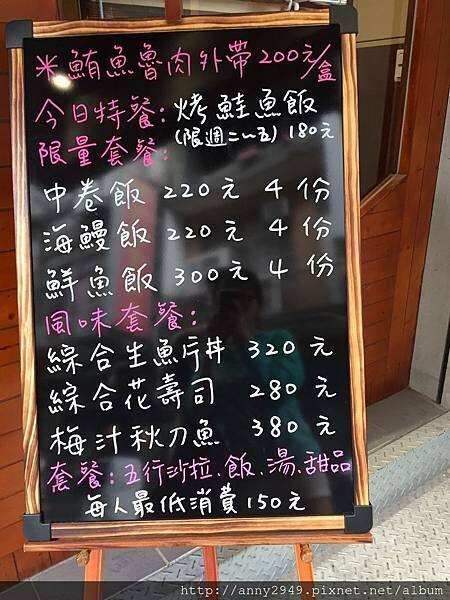 米鮪魚魯肉外帶200元/盒
今日特餐:烤鮭魚飯
(限週二~五)180元
限量套餐:
中卷飯 220元 4份
海鰻飯 220元 4份
鮮魚飯 300元 4份
風味套餐:
綜合生魚片丼 320元
綜合花壽司 280元
梅汁秋刀魚 380元
套餐:五行沙拉、飯、湯、甜品
每人最低消費150元
http://anny2949.pixnet.net/album